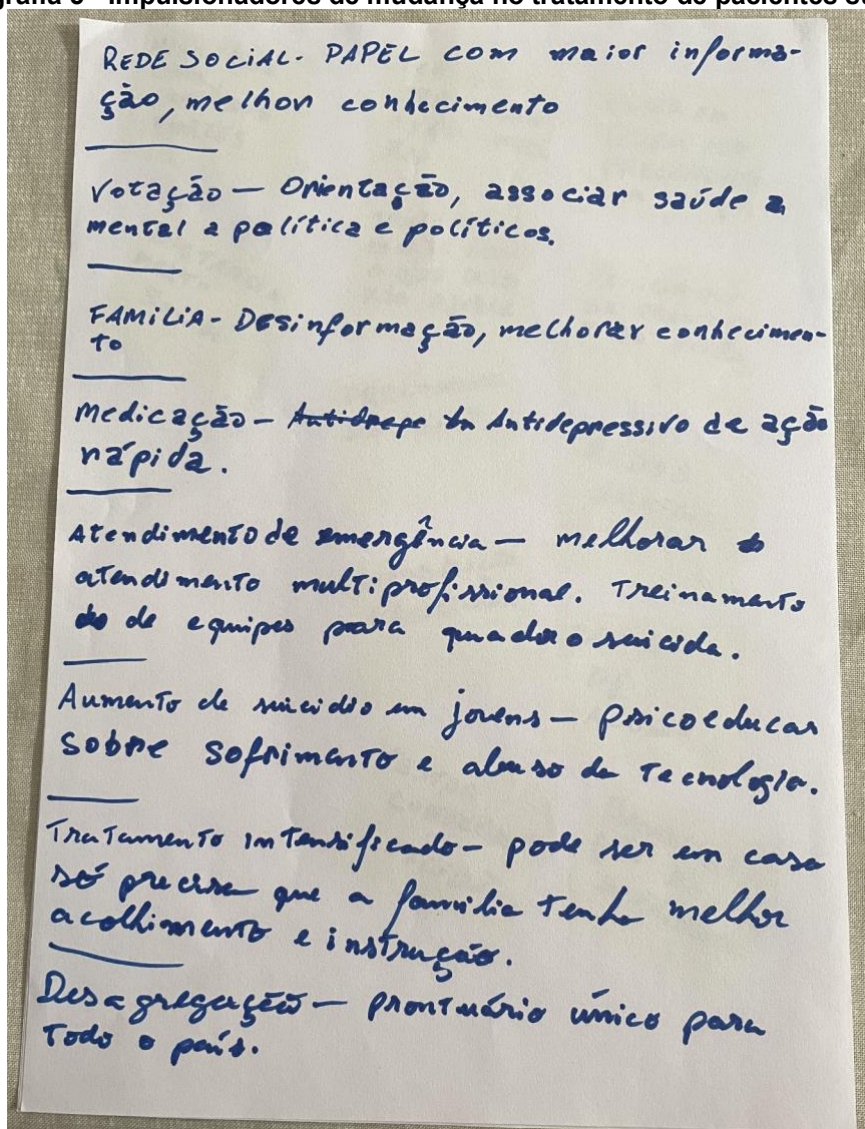 grafia 3 - Impulsionadores de mudança no tratamento de pacientes
REDE SOCIAL - PAPEL com maior informa-
ção, melhor conhecimento
Votação — Orientação, associar saúde a
mental a política e políticos.
FAMILIA - Desinformação, melhorar conhecimen-
to
Medicação — Antidepressivo de ação
rápida.
Atendimento de emergência — melhorar o
atendimento multiprofissional. Treinamento
de de equipes para quadro suicida.
Aumento de suicidio em jovens — psicoeducar
sobre sofrimento e abuso da Tecnologia.
Tratamento intensificado - pode ser em casa
só precisa que a família tenha melhor
acolhimento e instrução.
Desagregação — prontuário único para
Todo o país.